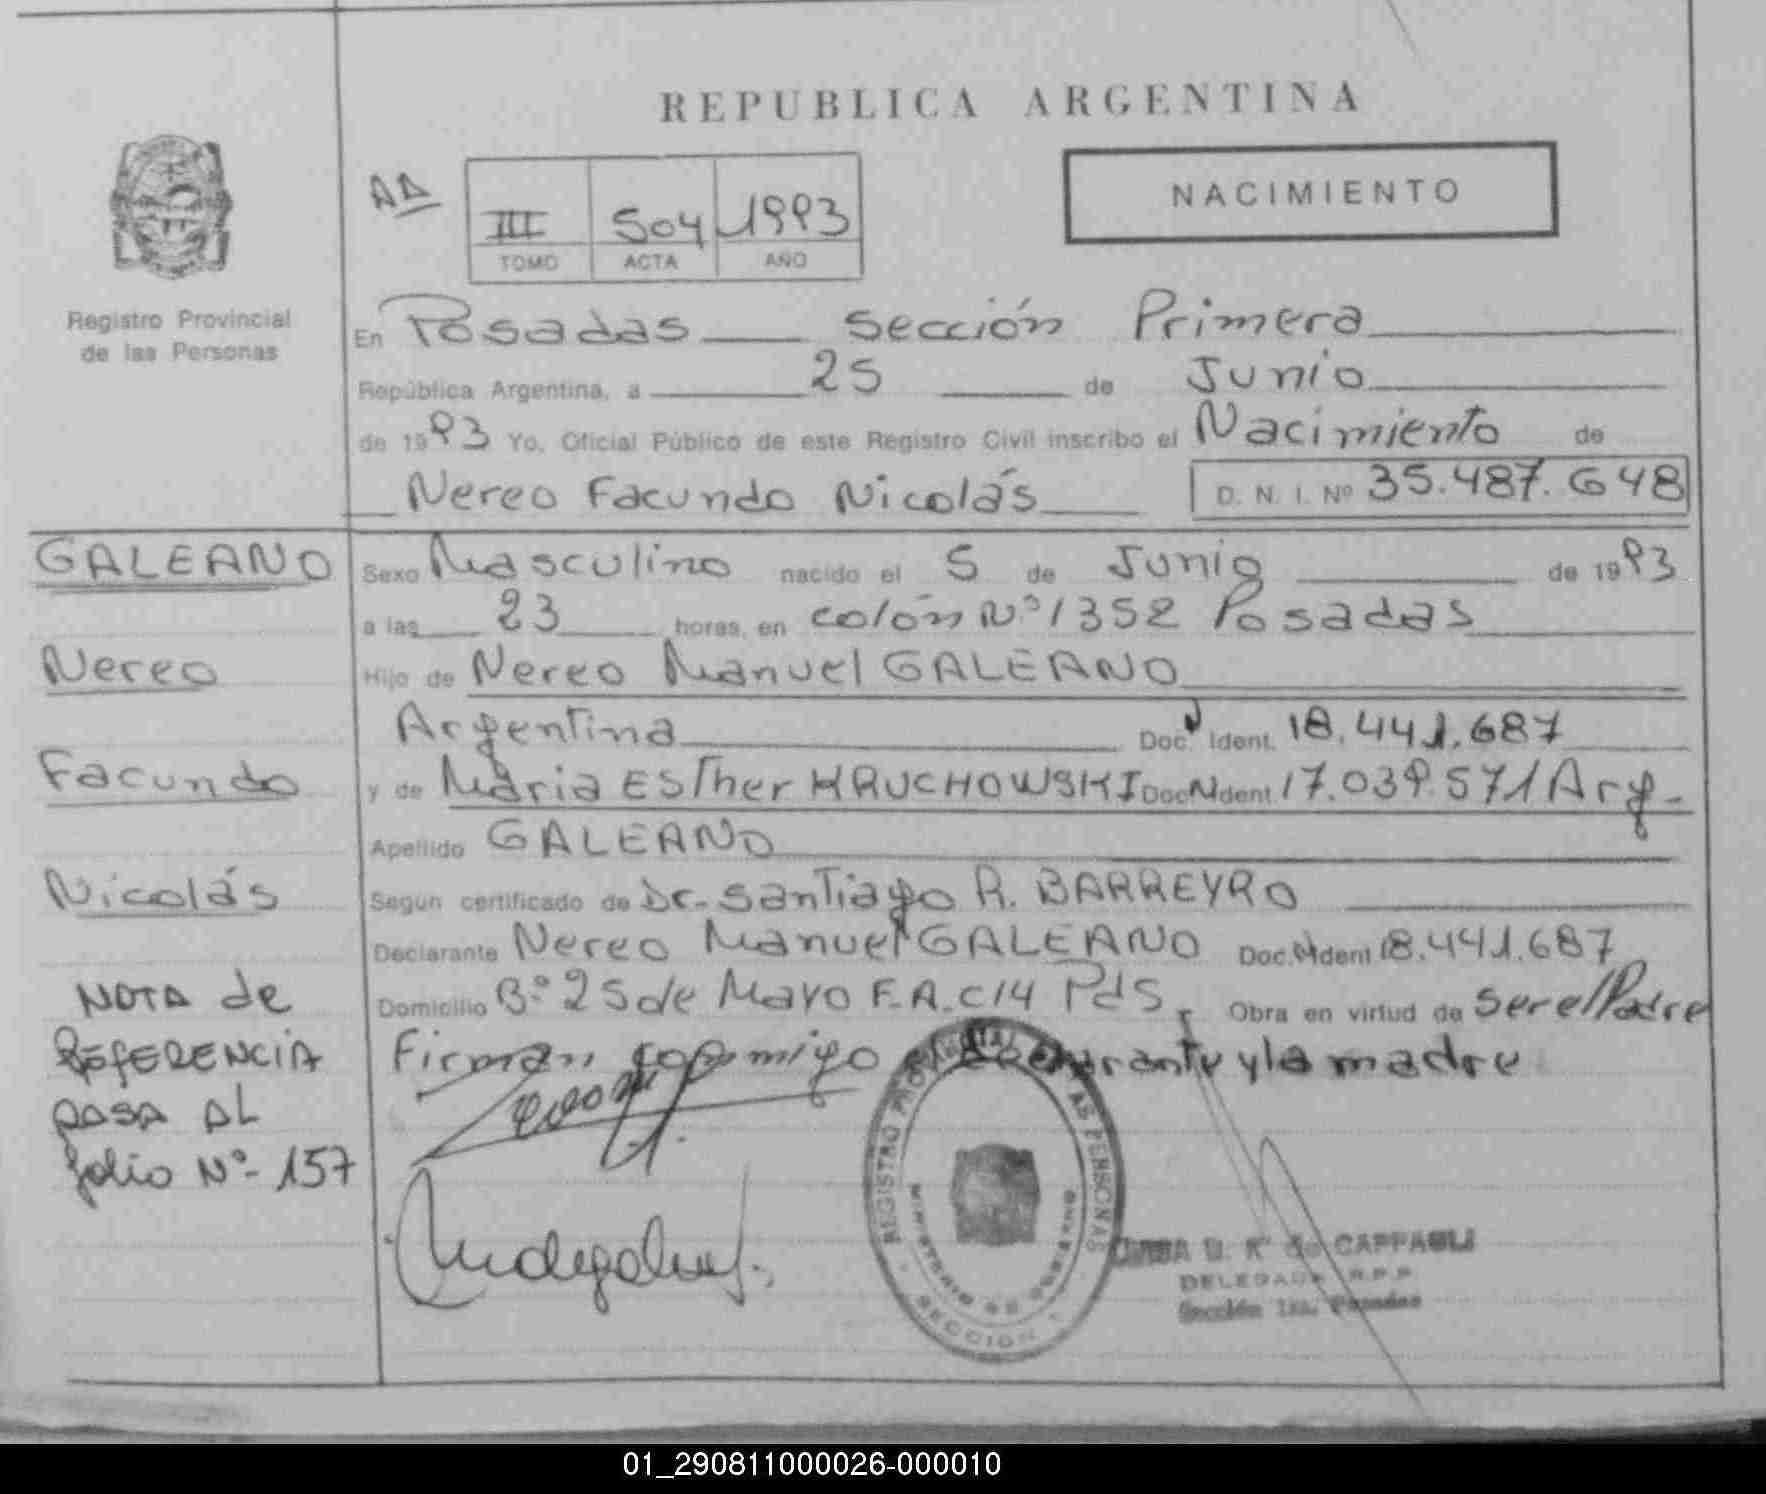 REPUBLICA ARGENTINA
Registro Provincial
de las Personas
AD
III 504 1993
TOMO ACTA AÑO
NACIMIENTO
En Posadas Sección Primera
República Argentina, a 25 de Junio
de 1993 Yo, Oficial Público de este Registro Civil inscribo el Nacimiento de
Nereo Facundo Nicolás D. N. I. Nº 35.487.648
GALEANO
Nereo
Facundo
Nicolás
NOTA de
REFERENCIA
pasa AL
folio Nº- 157
Sexo Masculino nacido el 5 de Junio de 1993
a las 23 horas, en colón N.º 1352 Posadas
Hijo de Nereo Manuel GALEANO
Argentina Doc. Ident. 18.441.687
y de María Esther KRUCHOWSKI Doc. Ident. 17.039.571 Arg-
Apellido GALEANO
Segun certificado de Dr. Santiago R. BARREYRO
Declarante Nereo Manuel GALEANO Doc. Ident 18.441.687
Domicilio Bº 25 de Mayo F.A. C14 Pds. Obra en virtud de ser el Padre
Firman conmigo el declarante y la madre
REGISTRO PROVINCIAL DE LAS PERSONAS
MINISTERIO DE GOBIERNO
SECCION
de CAPPAGLI
DELEGADA R.P.P.
Sección 1ra. Posadas
01_290811000026-000010